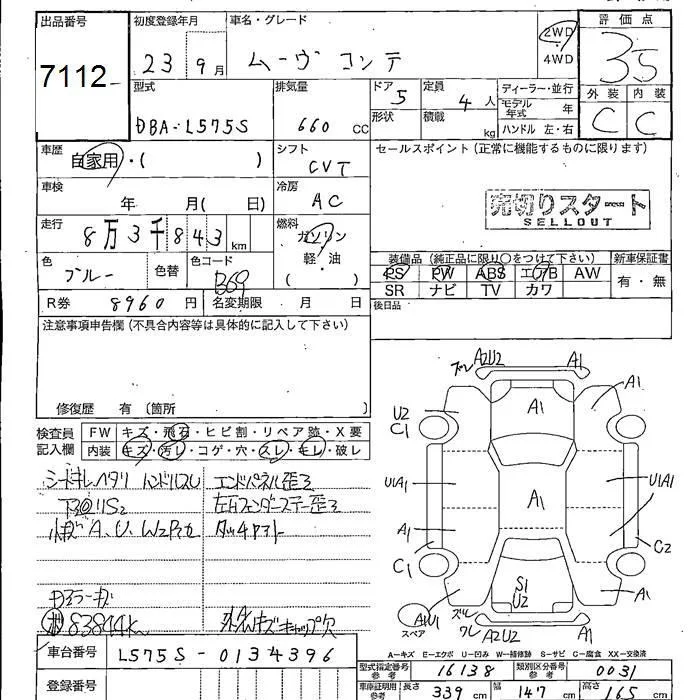 出品番号 初度登録年月 車名・グレード 2WD 評価点
7112 23 9月 ムーヴ コンテ 4WD 3.5
型式 排気量 ドア 定員 ディーラー・並行 外装 内装
DBA-L575S 660 CC 5 4人 モデル年式 年 C C
形状 積載 kg ハンドル 左・右
車歴 自家用・( ) シフト CVT セールスポイント(正常に機能するものに限ります)
車検 年 月( 日) 冷房 AC 売切りスタート
SELLOUT
走行 8万3千843km 燃料 ガソリン
軽・油
( )
色 ブルー 色替 色コード B69
装備品(純正品に限り○をつけて下さい) 新車保証書
PS PW ABS エアB AW 有・無
SR ナビ TV カワ
R券 8960円 名変期限 月 日 後日品
注意事項申告欄(不具合内容等は具体的に記入して下さい)
修復歴 有 〔箇所 〕
検査員 FW キズ・飛石・ヒビ割・リペア跡・X要
記入欄 内装 キズ・汚レ・コゲ・穴・スレ・キレ・破レ
シートキレヘタリ ハンドルスレ エンドパネル歪ミ
左右フェンダーステー歪ミ
A、U、W2 タッチアトー
83844km キャップ欠
ズレ A2U2 A1
A1 A1
U2
C1
U1A1 A1 U1A1
A1 C2
C1
S1
U2 A1
AW1 スペア
ズレ
ワレ A2U2 A1
A-キズ E-エクボ U-凹み W-補修跡 S-サビ C-腐食 XX-交換済
車台番号 L575S-0134396
型式指定番号 参考 16138 類別区分番号 参考 0031
登録番号 車庫証明用 参考 長さ 339cm 幅 147cm 高さ 165cm